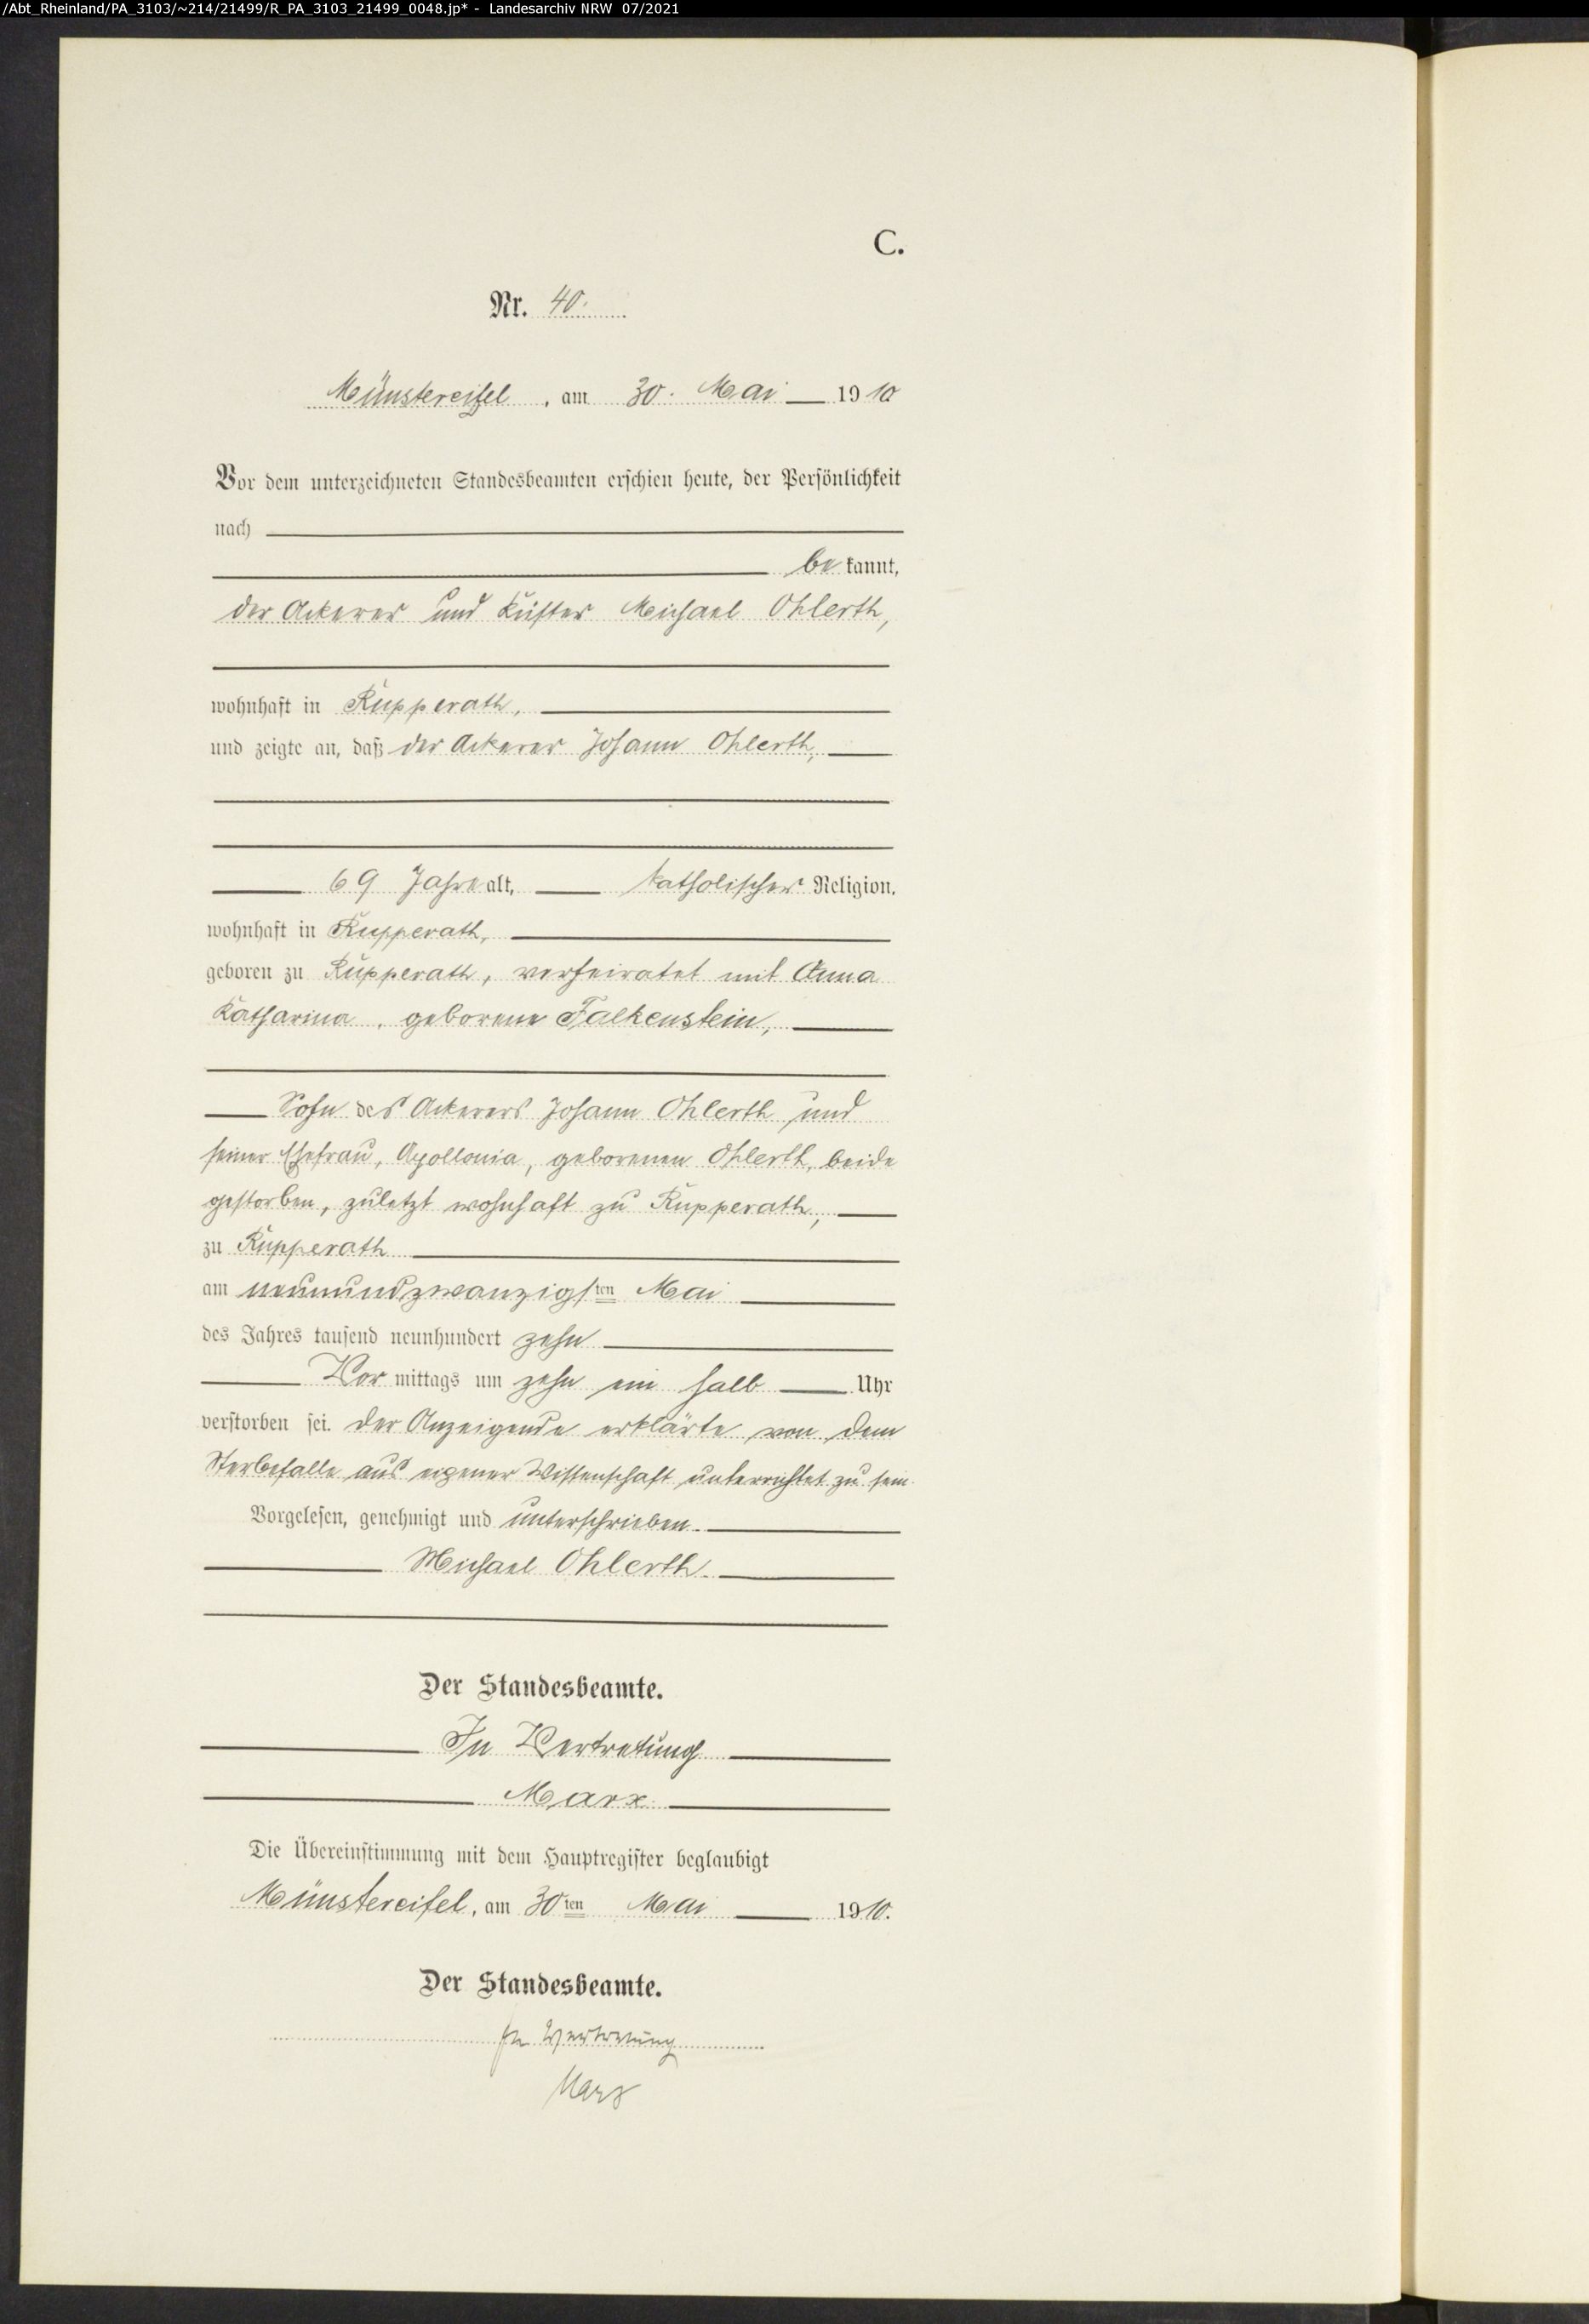 /Abt_Rheinland/PA_3103/~214/21499/R_PA_3103_21499_0048.jp* - Landesarchiv NRW 07/2021
C.
Nr. 40.
Münstereifel, am 30. Mai 1910
Vor dem unterzeichneten Standesbeamten erschien heute, der Persönlichkeit
nach
bekannt,
der Ackerer und Küster Michael Ohlerth,
wohnhaft in Rupperath,
und zeigte an, daß der Ackerer Johann Ohlerth,
69 Jahre alt, katholischer Religion,
wohnhaft in Rupperath,
geboren zu Rupperath, verheiratet mit Anna
Katharina, geborene Falkenstein,
Sohn des Ackerers Johann Ohlerth und
seiner Ehefrau, Apollonia, geborenen Ohlerth, beide
gestorben, zuletzt wohnhaft zu Rupperath,
zu Rupperath
am neunundzwanzigsten Mai
des Jahres tausend neunhundert zehn
Vormittags um zehn ein halb Uhr
verstorben sei. Der Anzeigende erklärte von dem
Sterbefalle aus eigener Wissenschaft unterrichtet zu sein.
Vorgelesen, genehmigt und unterschrieben.
Michael Ohlerth.
Der Standesbeamte.
In Vertretung
Marx.
Die Übereinstimmung mit dem Hauptregister beglaubigt
Münstereifel, am 30ten Mai 1910.
Der Standesbeamte.
In Vertretung
Marx